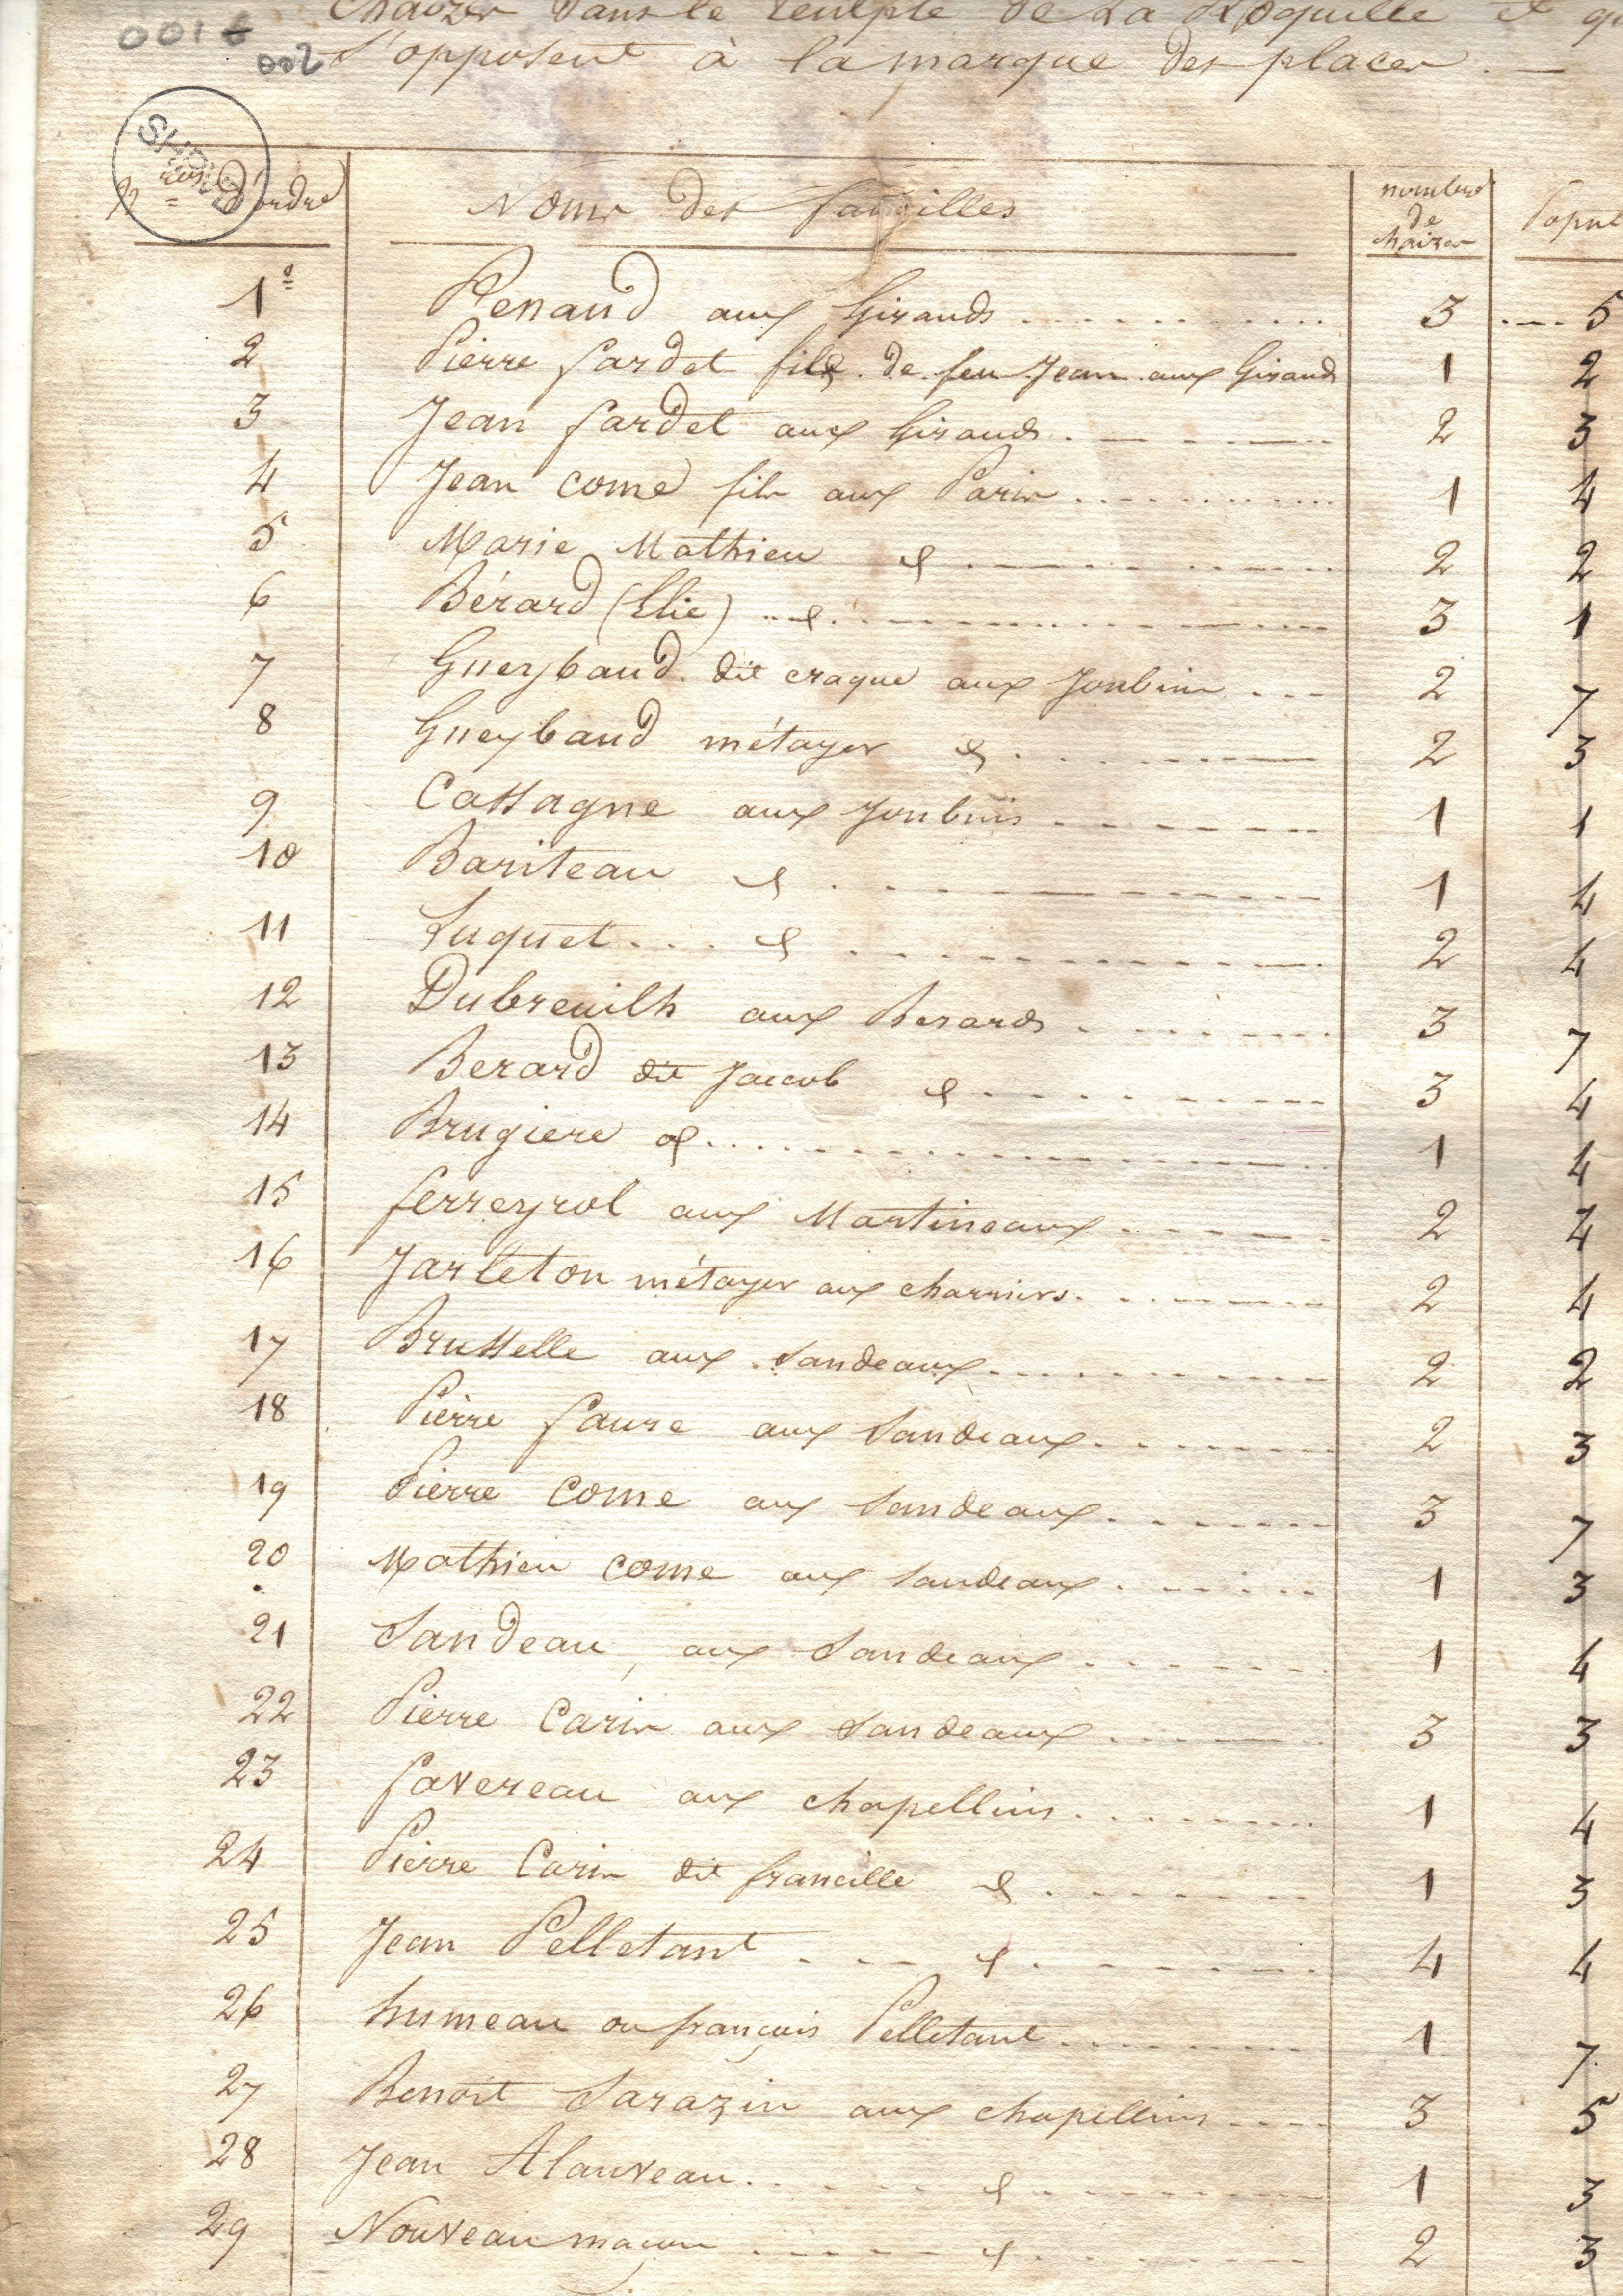 chaizes dans le temple de La Roquille et q
s'opposent à la marque des places. —
0016
002
nos d'ordre
Noms des familles
nombre de chaizes
Popul
1º Renaud aux Girauds 3 5
2 Pierre fardet fils de feu Jean aux Girauds 1 2
3 Jean fardet aux Girauds 2 3
4 Jean come fils aux Paris 1 4
5 Marie Mathieu d 2 2
6 Bérard (Elie) d 3 1
7 Gueybaud dit craque aux Jonbins 2 7
8 Gueybaud métayer d 2 3
9 Cassagne aux Jonbins 1 1
10 Bariteau d 1 4
11 Luquet d 2 4
12 Dubreuilh aux Berards 3 7
13 Berard dit Jacob d 3 4
14 Brugiere d 1 4
15 ferreyrol aux Martineaux 2 4
16 Jarleton métayer aux charriers 2 4
17 Brusselle aux Sandeaux 2 2
18 Pierre faure aux Sandeaux 2 3
19 Pierre come aux Sandeaux 3 7
20 Mathieu come aux Sandeaux 1 3
21 Sandeau, aux Sandeaux 1 4
22 Pierre Caris aux Sandeaux 3 3
23 favereau aux chapellins 1 4
24 Pierre Caris dit francille d 1 3
25 Jean Pelletant d 4 4
26 humeau ou françois Pelletant 1 7
27 Benoit Sarazin aux chapellins 3 5
28 Jean Alauveau d 1 3
29 Nouveau maçon d 2 3